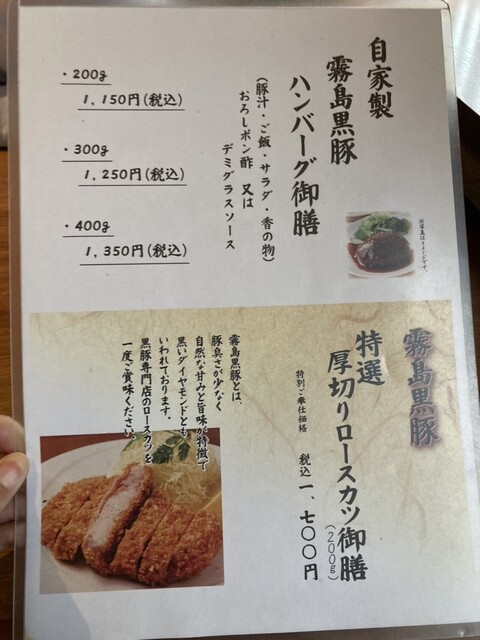 自家製
霧島黒豚
ハンバーグ御膳
(豚汁・ご飯・サラダ・香の物)
おろしポン酢 又は
デミグラスソース
・200g
1,150円(税込)
・300g
1,250円(税込)
・400g
1,350円(税込)
※写真はイメージです。
霧島黒豚
特選
厚切りロースカツ御膳
(200g)
特別ご奉仕価格
税込一、七〇〇円
霧島黒豚とは、
豚臭さが少なく
自然な甘みと旨味が特徴で
黒いダイヤモンドとも
いわれております。
黒豚専門店のロースカツを
一度ご賞味ください。